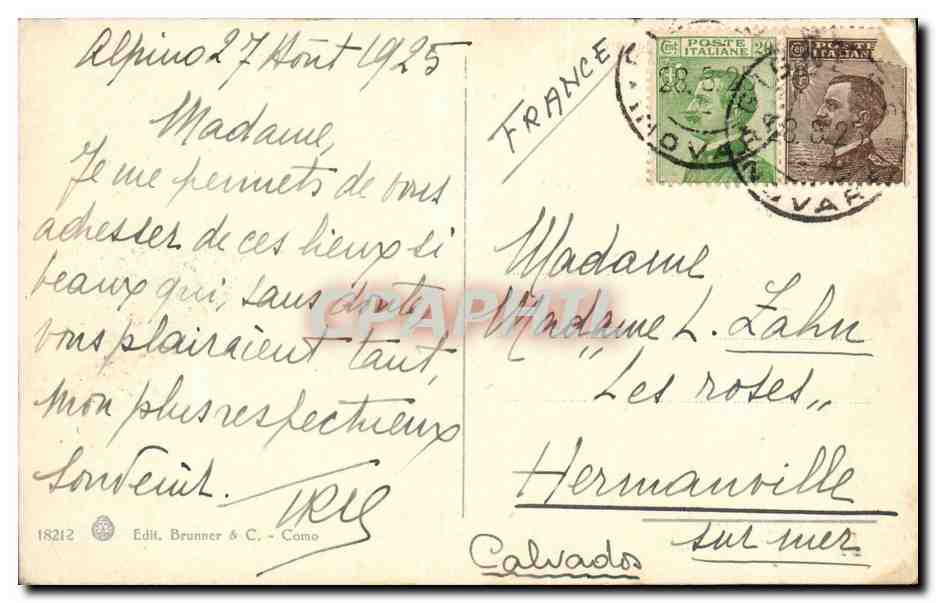 Alpino 27 Août 1925
Madame,
Je me permets de vous
adresser de ces lieux si
beaux qui, sans doute,
vous plairaient tant,
mon plus respectueux
souvenir.
18212 Edit. Brunner & C. - Como
FRANCE
POSTE
ITALIANE
20
POSTE
ITALIANE
NOVARA
NOVARA
Madame
Madame L. Zahn
Les roses„
Hermanville
sur mer
Calvados
CPAPHIL